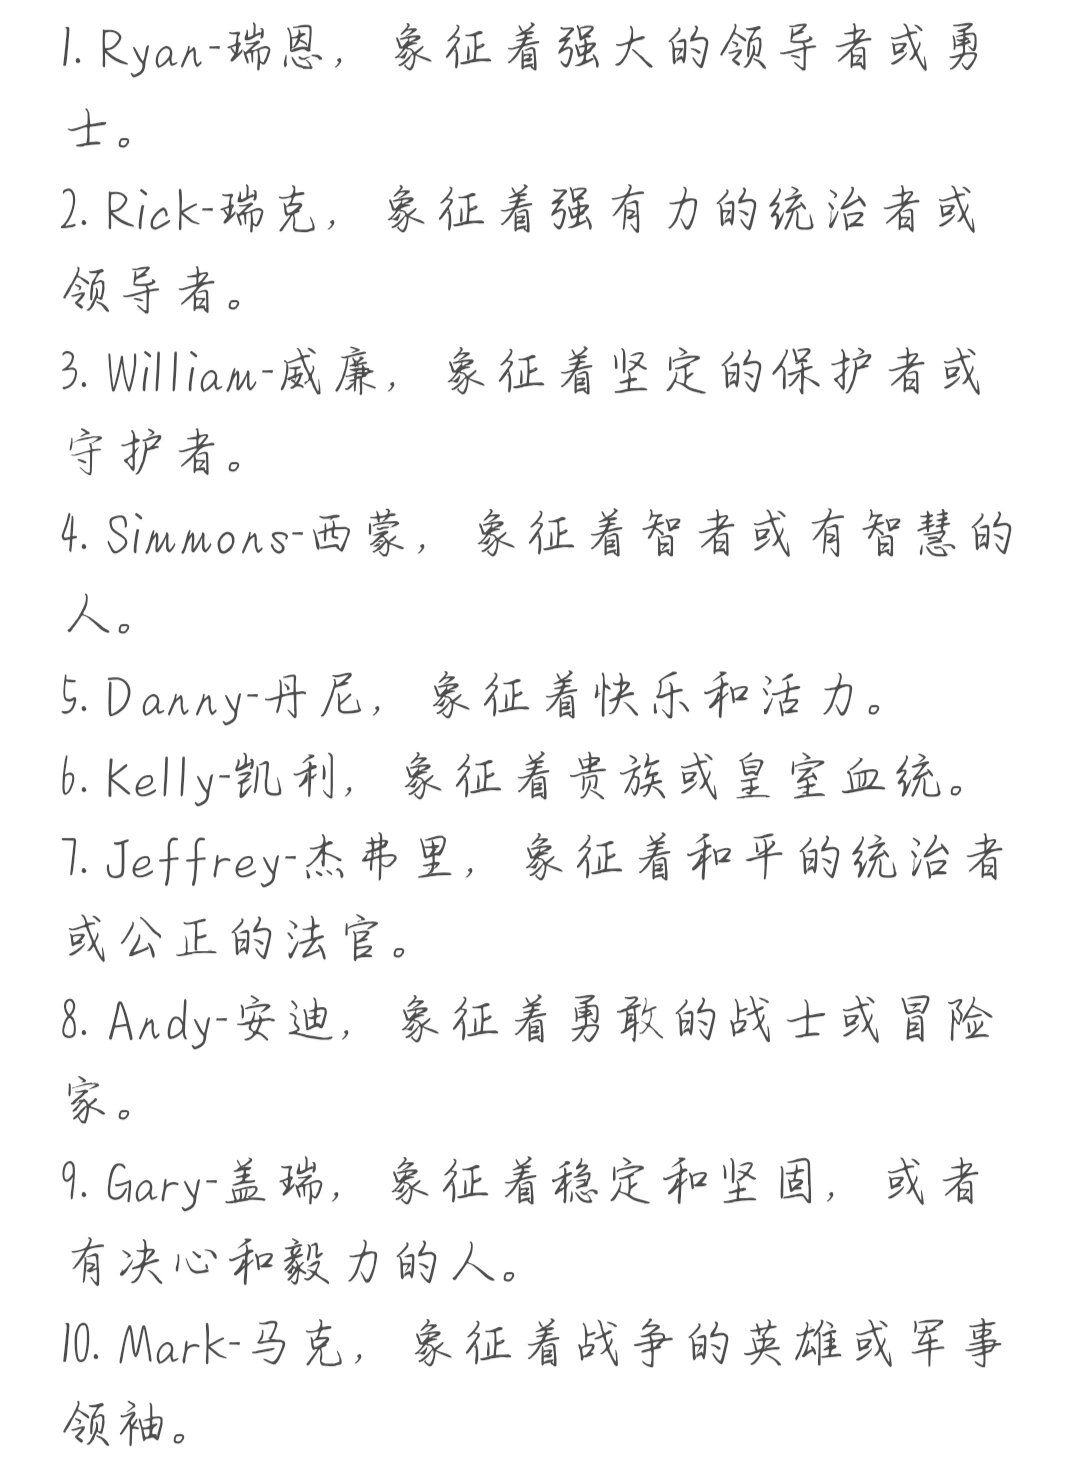 1. Ryan-瑞恩，象征着强大的领导者或勇
士。
2. Rick-瑞克，象征着强有力的统治者或
领导者。
3. William-威廉，象征着坚定的保护者或
守护者。
4. Simmons-西蒙，象征着智者或有智慧的
人。
5. Danny-丹尼，象征着快乐和活力。
6. Kelly-凯利，象征着贵族或皇室血统。
7. Jeffrey-杰弗里，象征着和平的统治者
或公正的法官。
8. Andy-安迪，象征着勇敢的战士或冒险
家。
9. Gary-盖瑞，象征着稳定和坚固，或者
有决心和毅力的人。
10. Mark-马克，象征着战争的英雄或军事
领袖。